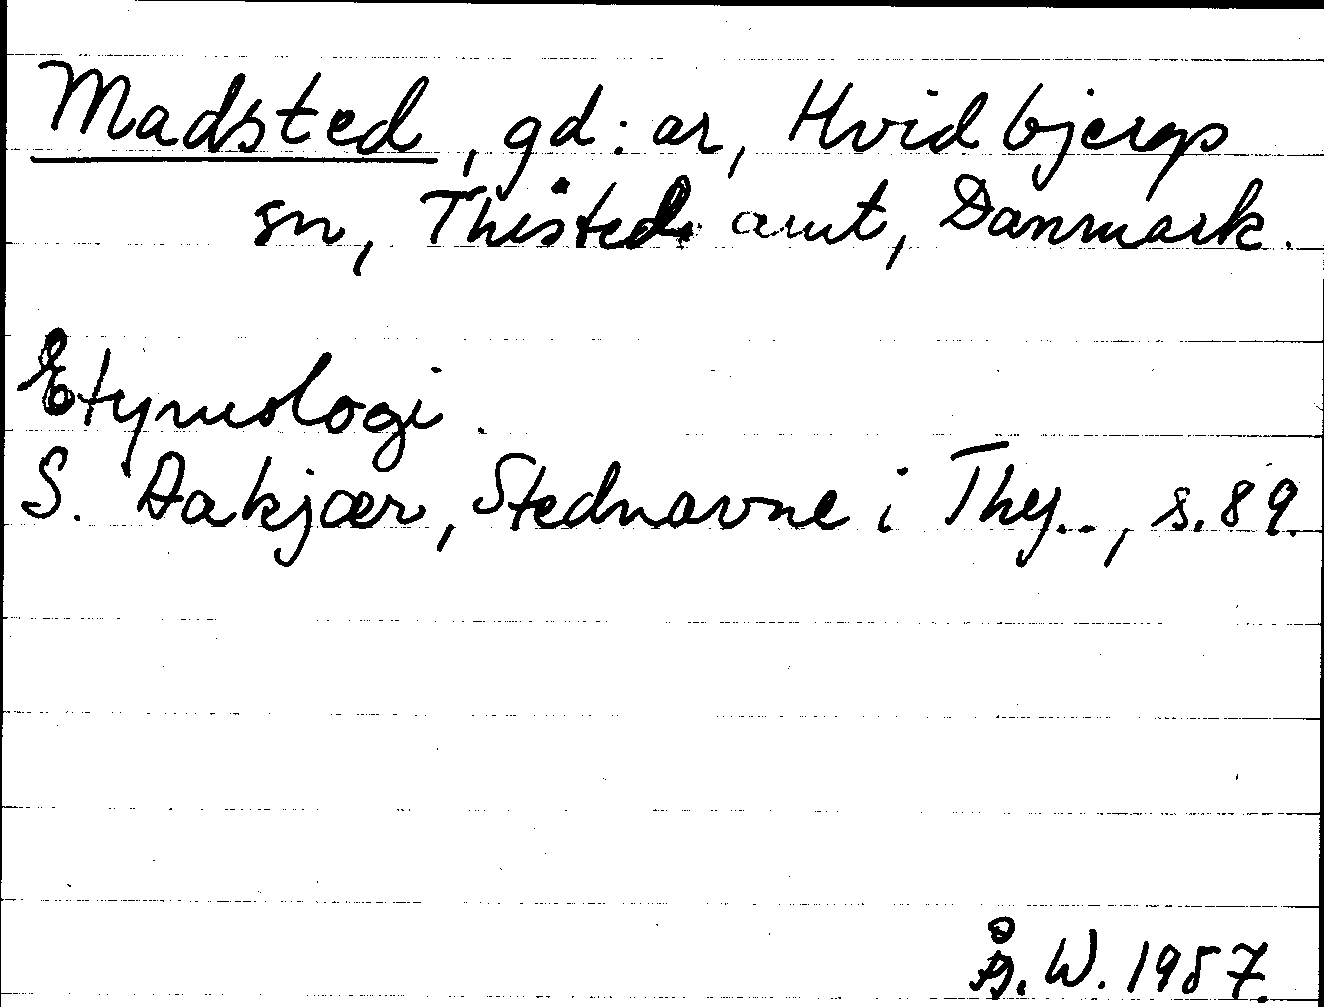 Madsted, gd:ar, Hvidbjergs
sn, Thisted amt, Danmark.
Etymologi.
S. Aakjær, Stednavne i Thy.., s. 89.
Å. W. 1957.